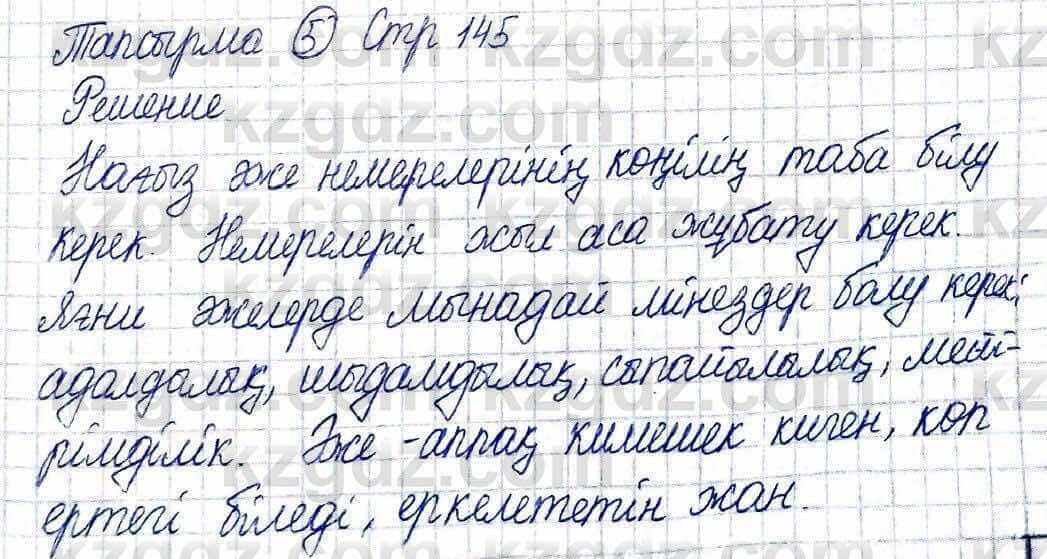 Тапсырма 5 Стр 145
Решение
Нағыз әже немерелерінің көңілің таба білу
керек. Немерелерін жыл аса жұбату керек.
Яғни әжелерде мынадай мінездер болу керек:
адалдалық, шыдамдылық, сыпайылалық, мейі-
рімділік. Әже - аппақ кимешек киген, көп
ертегі біледі, еркелететін жан.